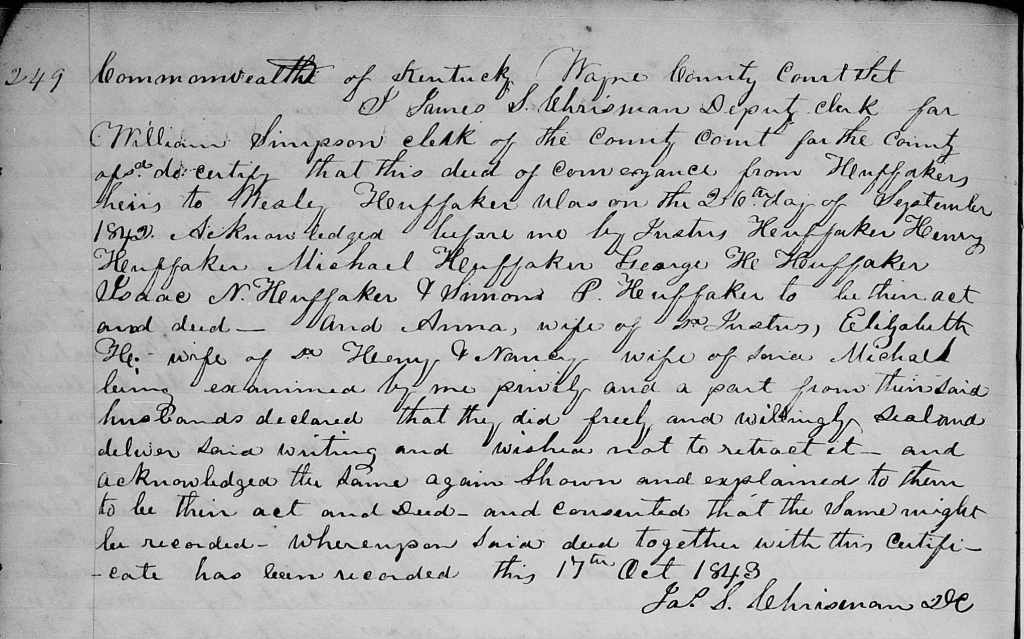 249 Commonwealth of Kentucky Wayne County Court Sct
I James S. Chrisman Deputy clerk for
William Simpson clerk of the County Court for the County
afsd. do certify that this deed of conveyance from Huffakers
heirs to Wesley Huffaker was on the 26th day of September
1842. Acknowledged before me by Justus Huffaker Henry
Huffaker Michael Huffaker George He Huffaker
Isaac N. Huffaker & Simons P. Huffaker to be their act
and deed — And Anna, wife of sd Justus, Elizabeth
He. wife of sd Henry & Nancy wife of said Michael
being examined by me privily and a part from their said
husbands declared that they did freely and willingly seal and
deliver said writing and wished not to retract it — and
acknowledged the same again shown and explained to them
to be their act and Deed — and consented that the same might
be recorded — whereupon said deed together with this certifi-
-cate has been recorded this 17th Oct 1843
Jas. S. Chrisman DC